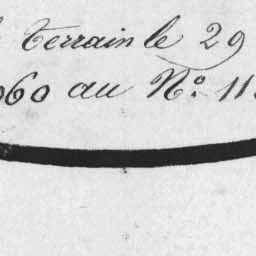 terrain le 29
060 au N.º 11